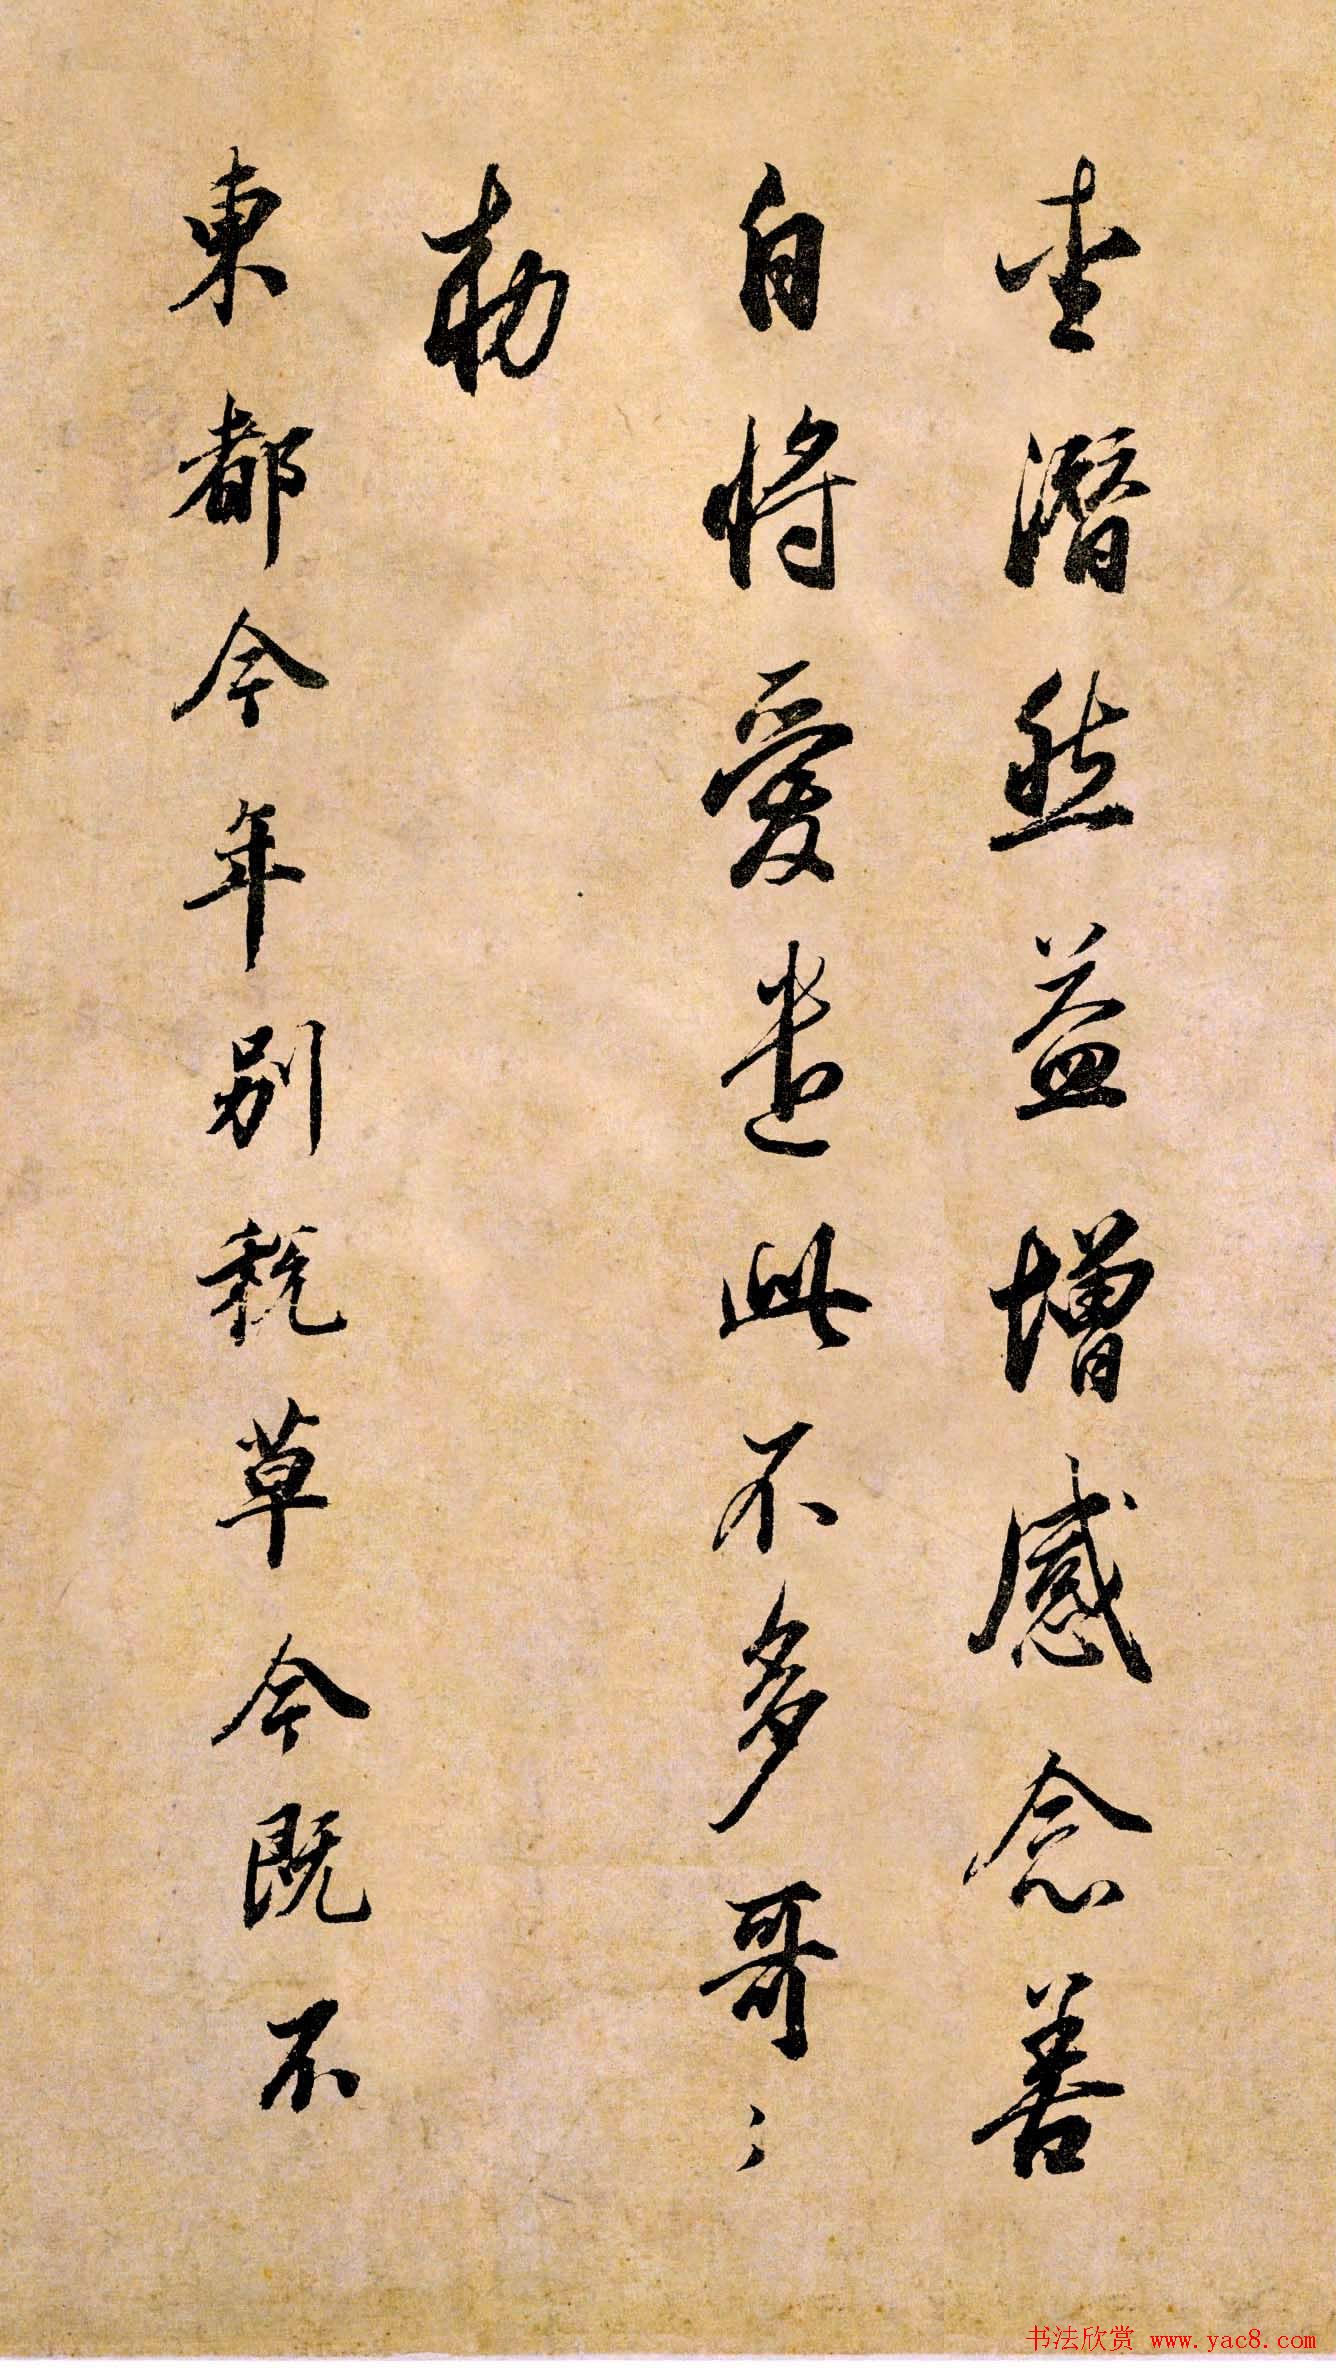 坐潜然益增感念善
自将爱遣此不多哥〻
敕
東都今年别税草今既不
书法欣赏 www.yac8.com